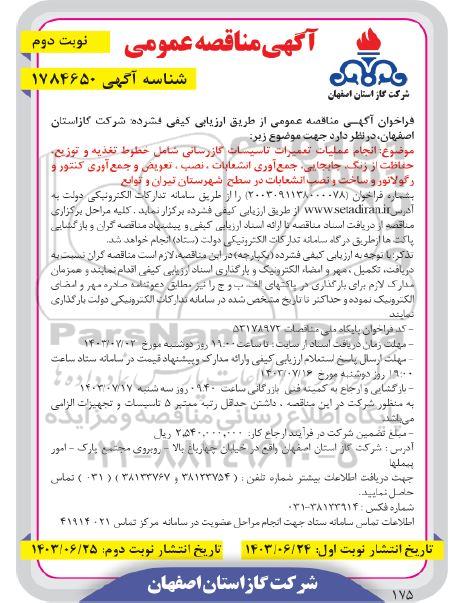 آگهی مناقصه عمومی
نوبت دوم
شناسه آگهی ۱۷۸۴۶۵۰
شرکت گاز استان اصفهان
فراخوان آگهی مناقصه عمومی از طریق ارزیابی کیفی فشرده: شرکت گاز استان
اصفهان، در نظر دارد جهت موضوع زیر:
موضوع: انجام عملیات تعمیرات تاسیسات گازرسانی شامل خطوط تغذیه و توزیع،
حفاظت از زنگ، جابجایی، جمع‌آوری انشعابات، نصب، تعویض و جمع‌آوری کنتور و
رگولاتور و ساخت و نصب انشعابات در سطح شهرستان تیران و توابع
بشماره فراخوان (۲۰۰۳۰۹۱۱۳۸۰۰۰۰۷۸) را از طریق سامانه تدارکات الکترونیکی دولت به
آدرس www.setadiran.ir از طریق ارزیابی کیفی فشرده برگزار نماید. کلیه مراحل برگزاری
مناقصه از دریافت اسناد مناقصه تا ارائه اسناد ارزیابی کیفی و پیشنهاد مناقصه گران و بازگشایی
پاکت ها ازطریق درگاه سامانه تدارکات الکترونیکی دولت (ستاد) انجام خواهد شد.
تذکر: با توجه به ارزیابی کیفی فشرده (یکپارچه) در این مناقصه، لازم است مناقصه گران نسبت به
دریافت، تکمیل، مهر و امضاء الکترونیک و بارگذاری اسناد ارزیابی کیفی اقدام نمایند و همزمان
مدارک لازم برای بارگذاری در پاکتهای الف، ب و ج را نیز مطابق دعوتنامه صادره مهر و امضای
الکترونیک نموده و حداکثر تا تاریخ مشخص شده در سامانه تدارکات الکترونیکی دولت بارگذاری
نمایند
- کد فراخوان پایگاه ملی مناقصات ۵۳۱۷۸۹۷۲
- مهلت زمان دریافت اسناد از سایت: تا ساعت ۱۹:۰۰ روز دوشنبه مورخ ۱۴۰۳/۰۷/۰۲
- مهلت ارسال پاسخ استعلام ارزیابی کیفی وارائه مدارک و پیشنهاد قیمت در سامانه ستاد ساعت
۱۹:۰۰ روز دوشنبه مورخ ۱۴۰۳/۰۷/۱۶
- بازگشایی و ارجاع به کمیته فنی بازرگانی ساعت ۰۹:۴۰ روز سه شنبه ۱۴۰۳/۰۷/۱۷
به منظور شرکت در این مناقصه، داشتن حداقل رتبه معتبر ۵ تاسیسات و تجهیزات الزامی
می‌باشد.
- مبلغ تضمین شرکت در فرآیند ارجاع کار: ۲,۵۴۰,۰۰۰,۰۰۰ ریال
آدرس: شرکت گاز استان اصفهان واقع در خیابان چهارباغ بالا - روبروی مجتمع پارک - امور
پیمانها
جهت دریافت اطلاعات بیشتر شماره تلفن: (۳۸۱۳۳۷۵۴ و ۳۸۱۳۳۷۶۷) (۰۳۱) تماس
حاصل نمایید.
شماره فکس: ۳۸۱۳۳۹۱۴-۰۳۱
اطلاعات تماس سامانه ستاد جهت انجام مراحل عضویت در سامانه مرکز تماس ۰۲۱ ۴۱۹۱۴
تاریخ انتشار نوبت اول: ۱۴۰۳/۰۶/۲۴
تاریخ انتشار نوبت دوم: ۱۴۰۳/۰۶/۲۵
شرکت گاز استان اصفهان
۱۷۵